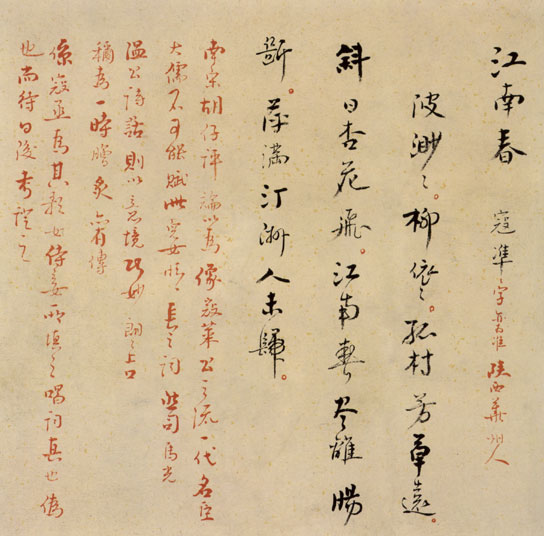 江南春 寇準字陝西華州人
波渺〻。柳依〻。孤村芳草遠。
斜日杏花飛。江南春盡離腸
斷。蘋滿汀洲人未歸。
南宋胡仔評論以為像寇萊公之流一代名臣
大儒不可能賦此兒女情長之詞司馬光
溫公詩話則以意境巧妙朗〻上口
稱為一時膾炙亦有傳
係寇丞為其歌女侍妾所填之唱詞真也偽
也而待日後考證之